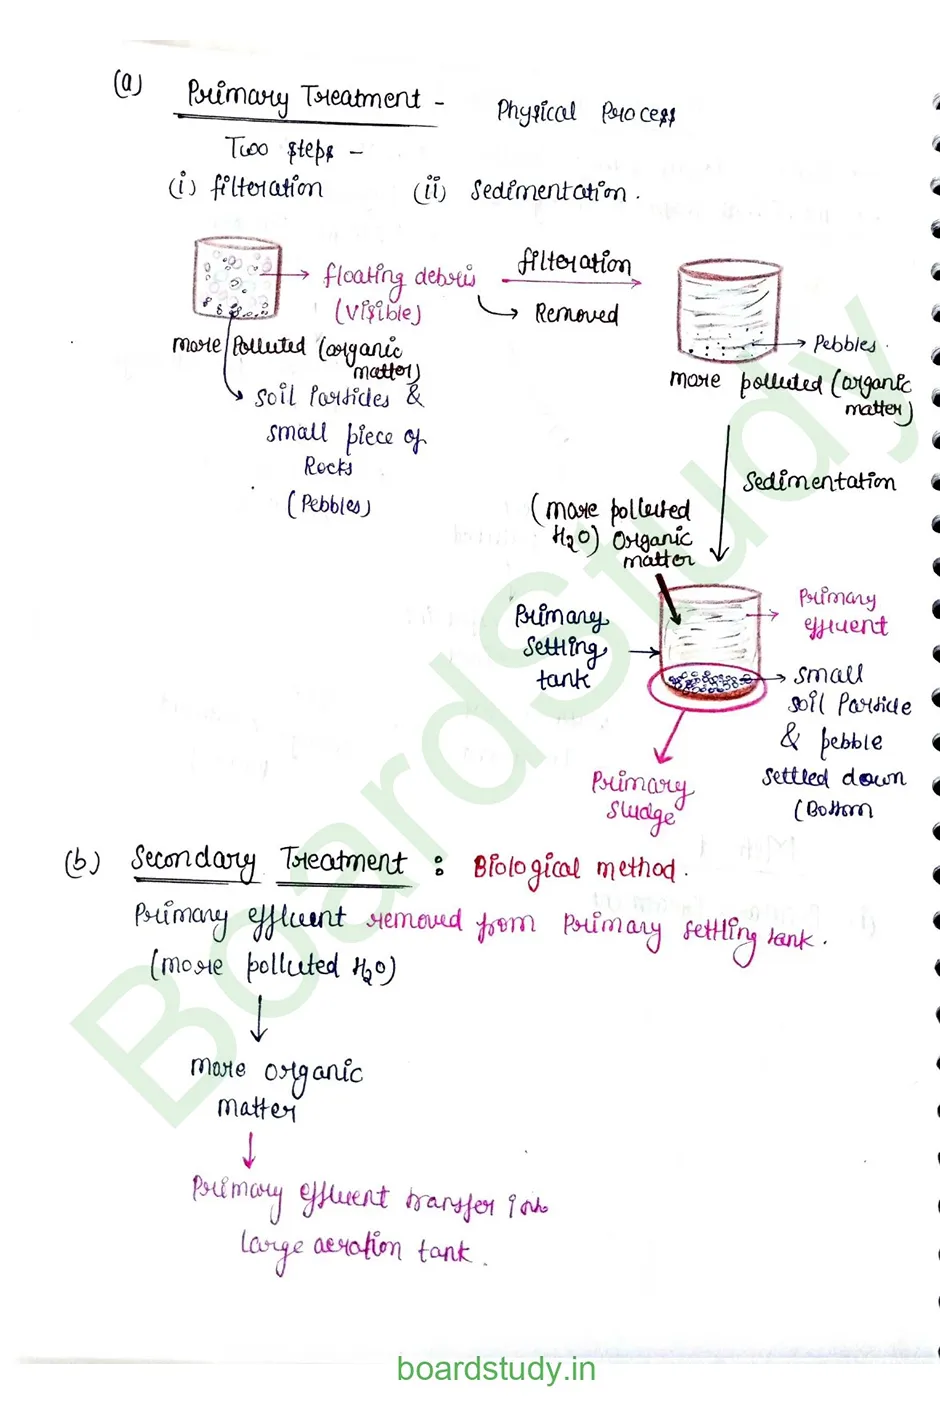 (a) Primary Treatment - Physical Process
Two steps -
(i) filteration (ii) Sedimentation.
floating debris
(Visible)
filteration
Removed
Pebbles.
more Polluted (organic
matter)
more polluted (organic
matter)
soil Particles &
small piece of
Rocks
(Pebbles)
Sedimentation
(more polluted
H2O) Organic
matter
Primary
Settling
tank
Primary
effluent
small
soil Particle
& pebble
settled down
(Bottom
Primary
sludge
(b) Secondary Treatment : Biological method.
Primary effluent removed from Primary settling tank.
(more polluted H2O)
more organic
matter
Primary effluent transfer into
large aeration tank.
BoardStudy
boardstudy.in